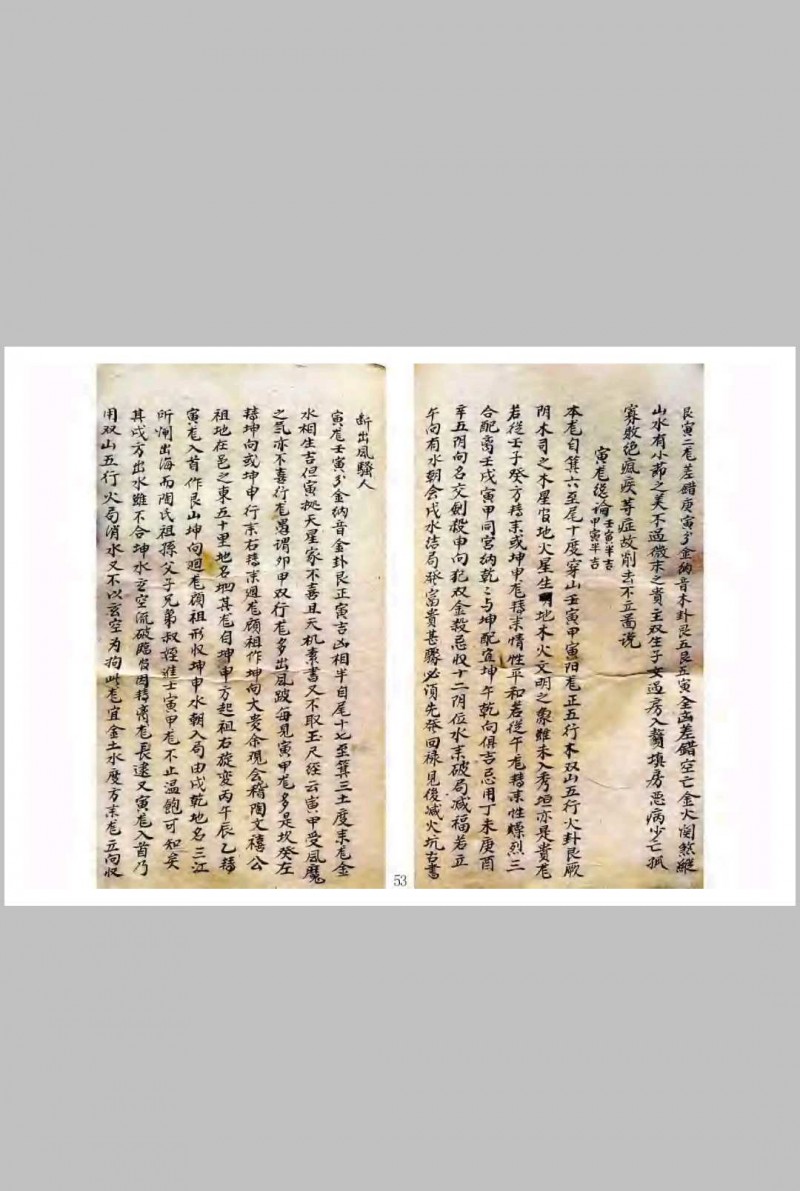 艮寅二龙差错庚寅分金納音木卦艮五艮五寅全凶差错空亡金火関煞縱
山水有小節之美不過微末之貴主双生子女過房入贅填房恶病少亡孤
寡敗絕瘋疾等症故削去不立啚说
寅龙總論壬寅半吉甲寅半吉
本龙自箕六至尾十度穿山壬寅甲寅阳龙正五行木双山五行火卦艮厥
阴木司之木星官地火星生明地木火文明之象雖未入秀垣亦是貴龙
若從壬子癸方转来或坤申龙转来情性平和若從午龙转来性燥烈三
合配离壬戌寅甲同宮纳乾乾与坤配宜坤午乾向俱吉忌用丁未庚酉
辛五阴向名交劍殺申向犯双金殺忌收十二阴位水来破局减福若立
午向有水朝会戌水结局發富貴甚勝必須先發回禄見後减火坑古書
断出風騷人
寅龙壬寅分金納音金卦艮正寅吉凶相半自尾十七至箕三土度来龙金
水相生吉但寅 天星家不喜且天机素書又不取玉尺经云寅甲受風魔
之氣亦不喜行龙愚谓卯甲双行龙多出風跛每見寅甲龙多是坎癸左
转坤向或坤申行来右转来廻龙顾祖作坤向大贵余观会稽陶文禧公
祖地在邑之東五十里地名 其龙自坤申方起祖右旋变丙午辰乙转
寅龙入首作艮山坤向廻龙顾祖形收坤申水朝入局由戌乾地名三江
所閘出海而陶氏祖孫父子兄弟叔姪進士寅甲龙不止温飽可知矣
其戌方出水雖不合坤水玄空流破臨官因转脊龙長遠又寅龙入首乃
用双山五行火局消水又不以玄空为拘此龙宜金土水度方来龙立向収
53